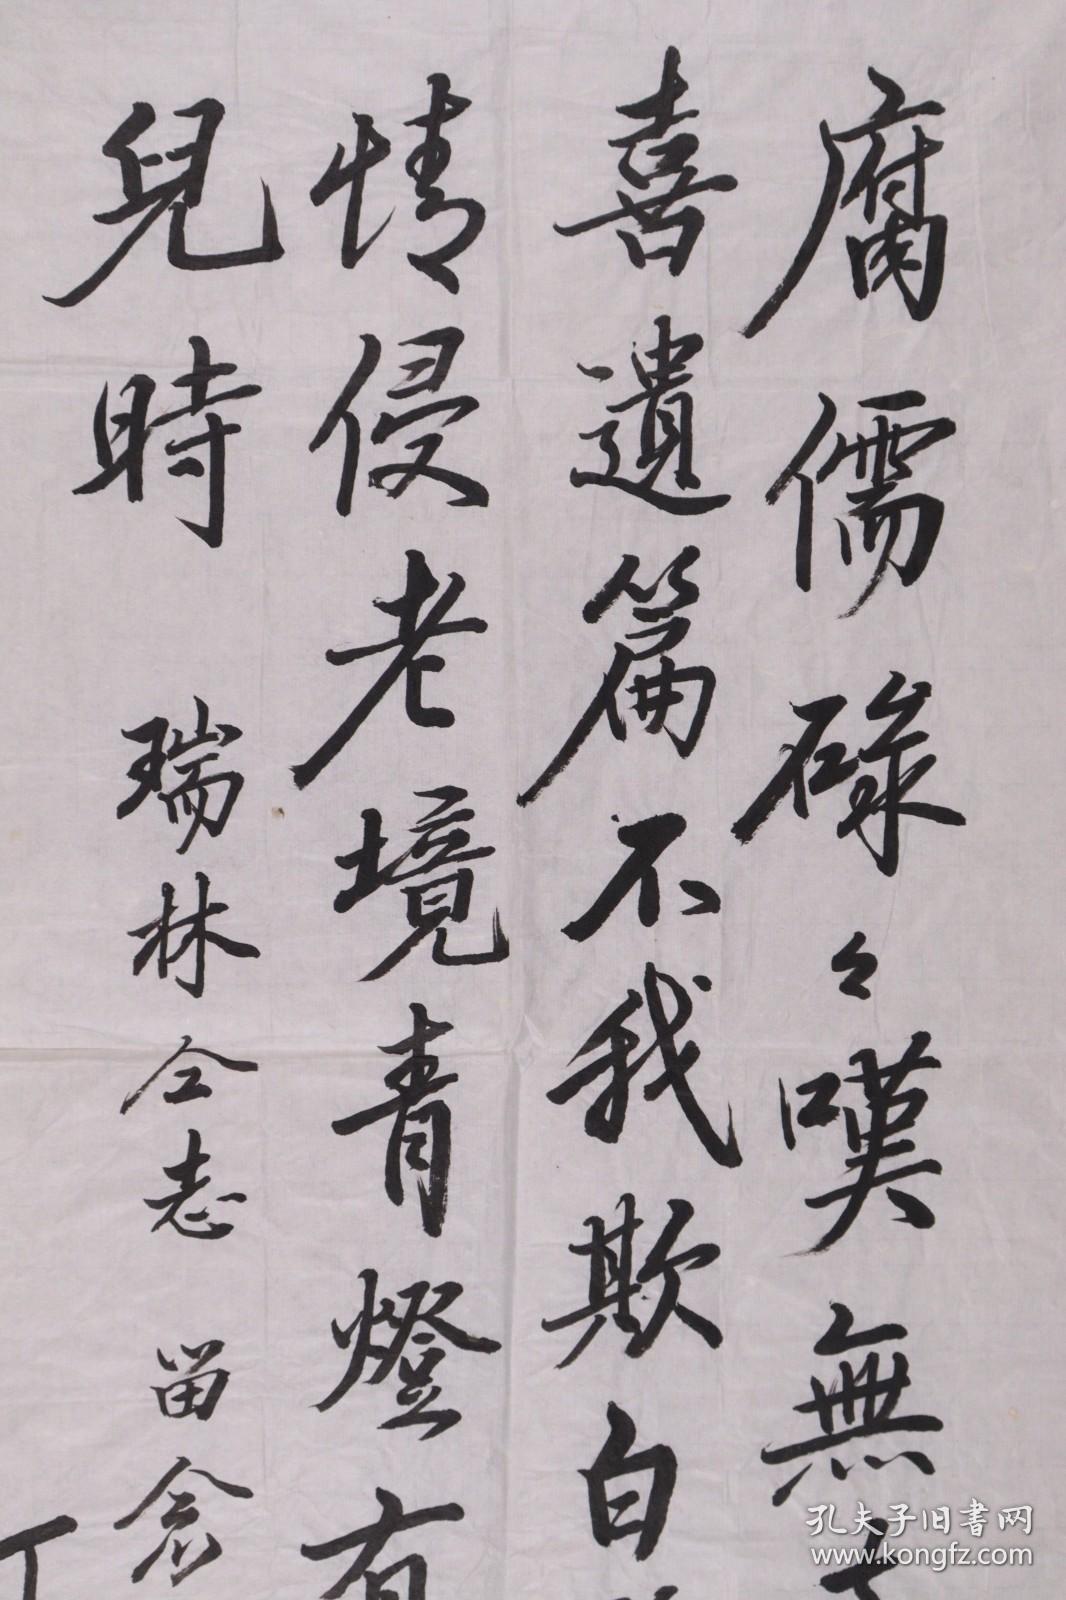 腐儒碌々嘆無
喜遺篇不我欺白
情侵老境青燈有
兒時
瑞林仝志 留念
孔夫子旧书网
www.kongfz.com